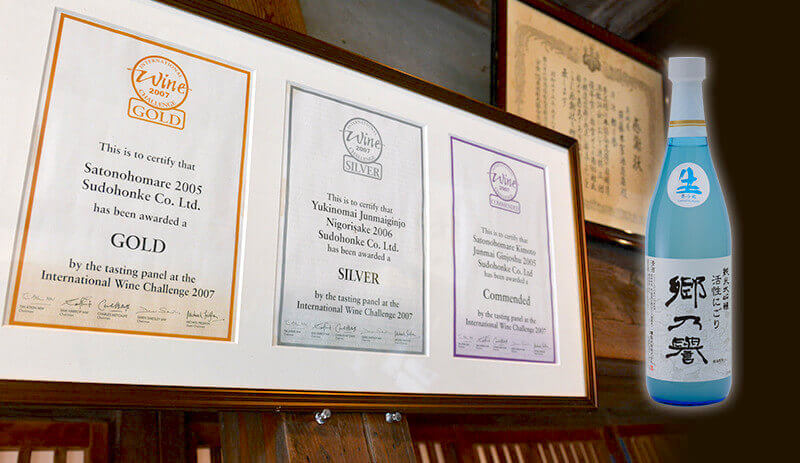 INTERNATIONAL
Wine
2007
CHALLENGE
GOLD
This is to certify that
Satonohomare 2005
Sudohonke Co. Ltd.
has been awarded a
GOLD
by the tasting panel at the
International Wine Challenge 2007
INTERNATIONAL
Wine
2007
CHALLENGE
SILVER
This is to certify that
Yukinomai Junmaiginjo
Nigorisake 2006
Sudohonke Co. Ltd.
has been awarded a
SILVER
by the tasting panel at the
International Wine Challenge 2007
Wine
2007
COMMENDED
This is to certify that
Satonohomare Kimoto
Junmai Ginjoshu 2005
Sudohonke Co. Ltd
has been awarded a
Commended
by the tasting panel at the
International Wine Challenge 2007
感謝状
生
純米大吟醸
活性にごり
郷乃誉